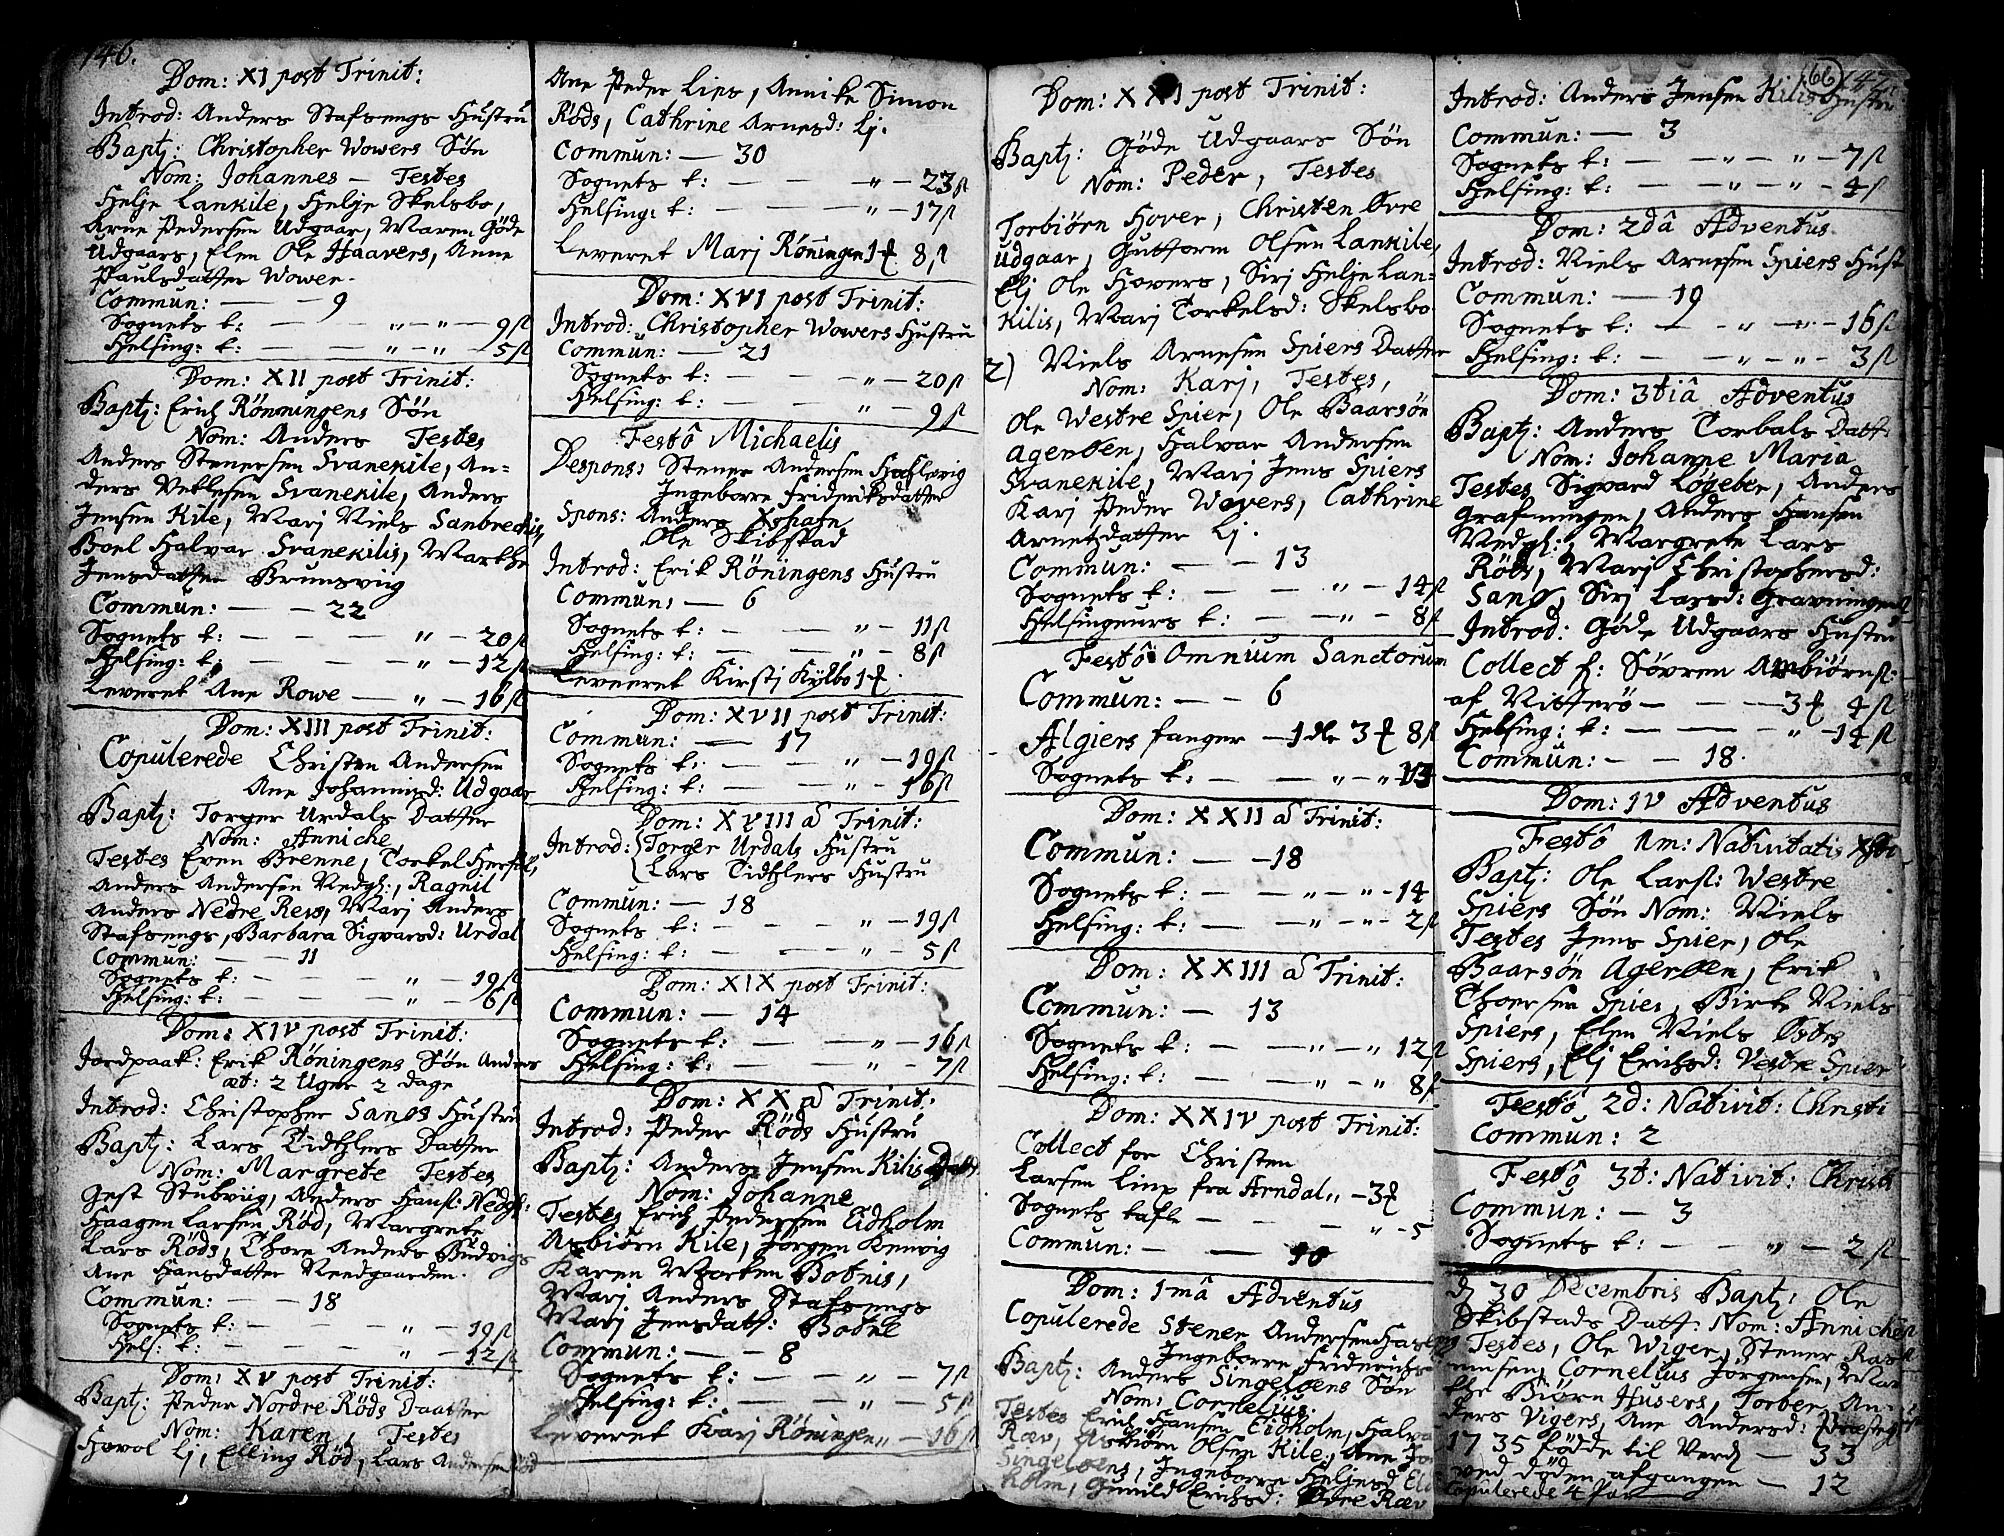 146.
Dom: XI post Trinit:
Introd: Anders Stafsengs Hustru
Bapt: Christopher Wowers Søn
Nom: Johannes — Testes
Helje Lankile, Helje Skelsbo,
Arne Pedersen Udgaar, Maren Gøde
Udgaars, Elen Ole Haavers, Anne
Paulsdatter Wower.
Commun: — — 9
Sognets t: — — " — " — 9ß
Helsing: t: — — " — " — 5ß
Dom: XII post Trinit:
Bapt: Erich Rönningens Søn
Nom: Anders Testes
Anders Stenersen Svanekile, An-
ders Vetlesen Svanekile, Anders
Jensen Kile, Marj Niels Sanbrechis,
Boel Halvar Svanekilis, Marthe
Jensdatter Brunsviig
Commun: — — 22
Sognets t: — — " — 20ß
Helsing: t: — — — " — 12ß
Leveret Ane Rowe — " — 16ß
Dom: XIII post Trinit:
Copulerede Christen Andersen
Ane Johannisd: Udgaar
Bapt: Torger Urdals Datter
Nom: Anniche
Testes Even Brenne, Torkel
Anders Andersen Nedgl:, Ragnil
Anders Nedre Reis, Marj Anders
Stafsengs, Barbara Sigvarsd: Urdal
Commun: — — 11
Sognets t: — — — " — 19ß
Helsing: t: — — — " — 6ß
Dom: XIV post Trinit:
Jordpaak: Erik Röningens Søn Anders
æt: 2 Uger 2 dage
Introd: Christopher Sanøs Hustru
Bapt: Lars Tidtzlers Datter
Nom: Margrete Testes
Gest Stubviig, Anders Hans: Nedgl:
Haagen Larsen Röd, Margrete
Lars Röds, Thore Anders Budvigs
Ane Hansdatter Needgaarden.
Commun: — — 18
Sognets t: — — — " — 19ß
Hels: t: — — — " — 12ß
Dom: XV post Trinit:
Bapt: Peder Nordre Röds Daatter
Nom: Karen, Testes
Havol Lj, Elling Röd, Lars Andersen Röd
Ane Peder Lips, Annike Simon
Röds, Cathrine Arnesd: Lj.
Commun: — 30
Sognets t: — — — " — 23ß
Helsing: t: — — — " — 17ß
Leveret Marj Röningen 1 8ß
Dom: XVI post Trinit:
Introd: Christopher Wowers Hustru
Commun: — 21
Sognets t: — — — " — 20ß
Helsing: t: — — — " — 9ß
Festô Michaelis
Despons: Stener Andersen Haslevig
Ingeborre Frideriksdatter
Spons: Anders
Ole Skibstad
Introd: Erik Röningens Hustru
Commun: — 6
Sognets t: — — " — 11ß
Helsing: t: — — " — 8ß
Leveret Kirstj Kylbo 1
Dom: XVII post Trinit:
Commun: — 17
Sognets t: — — " — 19ß
Helsing: t: — — " — 16ß
Dom: XVIII a Trinit:
Introd: Torger Urdals Hustru
Lars Tidtzlers Hustru
Commun: — 18
Sognets t: — — — " — 19ß
Helsing: t: — — — " — 5ß
Dom: XIX post Trinit:
Commun: — 14
Sognets t: — — " — 16ß
Helsing: t: — — " — 7ß
Dom: XX a Trinit:
Introd: Peder Röds Hustru
Bapt: Anders Jensen Kilis Datt:
Nom: Johanne
Testes Erich Pedersen Eidholm
Asbiörn Kile, Jörgen Kenvig
Karen Morten Botnis,
Marj Anders Stafsengs
Marj Jensdatt: Botne
Commun: — — 8
Sognets t: — — " — 7ß
Helsing: t: — — " — 5ß
Leveret Karj Röningen " — 16ß
Dom: XXI post Trinit:
Bapt: Gøde Udgaars Søn
Nom: Peder, Testes
Torbiörn Hover, Christen Øvre
Udgaar, Guttorm Olsen Lankile,
Elj Ole Howers, Sirj Helje Lan-
kilis, Marj Torkelsd: Skelsbo
2) Niels Arnesen Spiers Datter
Nom: Karj, Testes,
Ole Westre Spier, Ole Baarsøn
Agerøen, Halvar Andersen
Svanekile, Marj Jens Spiers
Karj Peder Wowers, Cathrine
Arnetzdatter Lj.
Commun: — — 13
Sognets t: — — " — 14ß
Helsingeurs t: — — " — 8ß
Festô Omnium Sanctorum
Commun: — — 6
Algiers fanger — 1 dlr 3 8ß
Sognets t: — — " — " 13
Dom: XXII a Trinit:
Commun: — — 18
Sognets t: — — " — " — 14
Helsing: t: — — " — " — 2ß
Dom: XXIII a Trinit:
Commun: — 13
Sognets t: — — " — " 12ß
Helsing: t: — — " — " 8ß
Dom: XXIV post Trinit:
Collect for Christen
Larsen Linp fra Arndal " — 3
Sognets tafle — — — " — 5
Commun: — — 10
Dom: 1mâ Adventus
Copulerede Stener Andersen Haslevig
Ingeborre Friderichs
Bapt: Anders Singeløens Søn
Nom: Cornelius.
Testes Erich Hansen Eidholm, Halva
Ræv, Asbiörn Olsen Kile, Ane
Singeløens, Ingeborre Heljesd Eid
holm, Gunild Erichsd: Øvre Ræv
66 147.
Introd: Anders Jensen Kilis Hustru
Commun: — 3
Sognets t: — — " — " — 7ß
Helsing: t: — — " — " — 4ß
Dom: 2dâ Adventus
Introd: Niels Arnesen Spiers Hust
Commun: — 19
Sognets t: — — " — " — 16ß
Helsing: t: — — " — " — 3ß
Dom: 3tiâ Adventus
Bapt: Anders Torbals Datt:
Nom: Johanne Maria
Testes Sigvard Løgeber, Anders
Grafningen, Anders Hansen
Nedgl:, Margrete Lars
Röds, Marj Christophersd:
Sanø, Sirj Larsd: Gravningen
Introd: Gøde Udgaars Hustru
Collect f: Søvren Ambiörns:
af Nitterö — — — 3 4ß
Helsing: t: — — — " — 14ß
Commun: — — 18.
Dom: IV Adventus
Festô 1m: Nativitatis Xsti
Bapt: Ole Lars: Westre
Spiers Søn Nom: Niels
Testes Jens Spier, Ole
Baarsøn Agerøen, Erik
Thoersen Spier, Birte Niels
Spiers, Elen Niels Østes
Spiers, Elj Erichsd: Vestre Spier
Festô 2d: Nativit: Christi
Commun: 2
Festô 3t: Nativit: Christi
Commun: — 3
Sognets t: — — " — 2ß
dj 30 Decembris Bapt: Ole
Skibstads Datt: Nom: Annichen
Testes, Ole Wiger, Stener Ras
mussen, Cornelius Jörgensen, Mar
the Biörn Husers, Torber An-
ders Vigers, Ane Andersd: Præsteg
1735 fødde til Verd — 33
ved døden afgangen — 12
Copulerede 4 Par